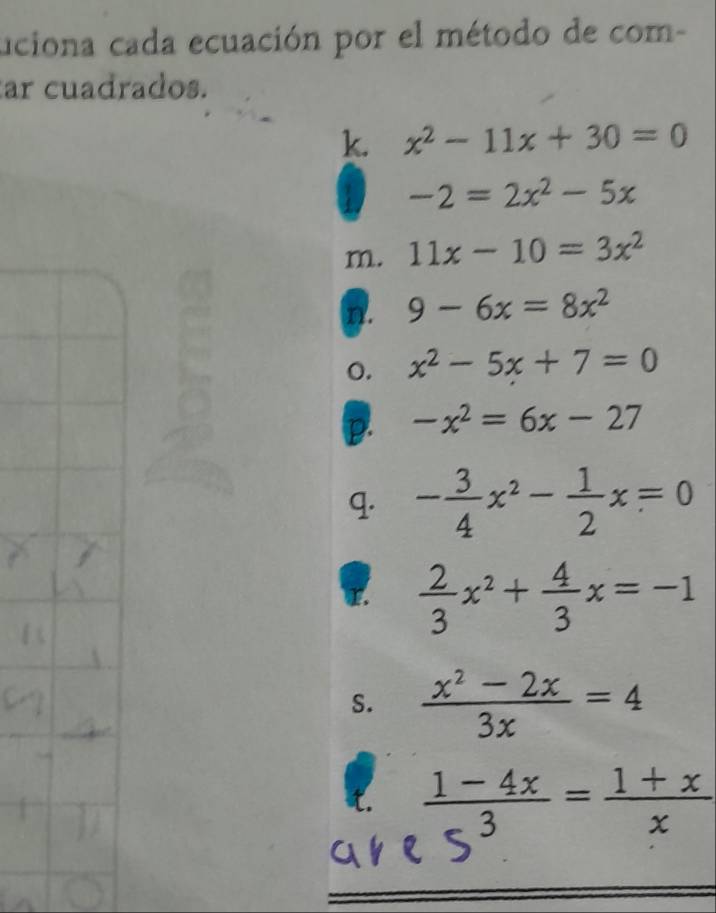 uciona cada ecuación por el método de com-
tar cuadrados.
k. x² − 11x + 30 = 0
l. −2 = 2x² − 5x
m. 11x − 10 = 3x²
n. 9 − 6x = 8x²
o. x² − 5x + 7 = 0
p. −x² = 6x − 27
q. −3/4 x² − 1/2 x = 0
r. 2/3 x² + 4/3 x = −1
s. (x² − 2x)/3x = 4
t. (1 − 4x)/3 = (1 + x)/x
ares
Norma